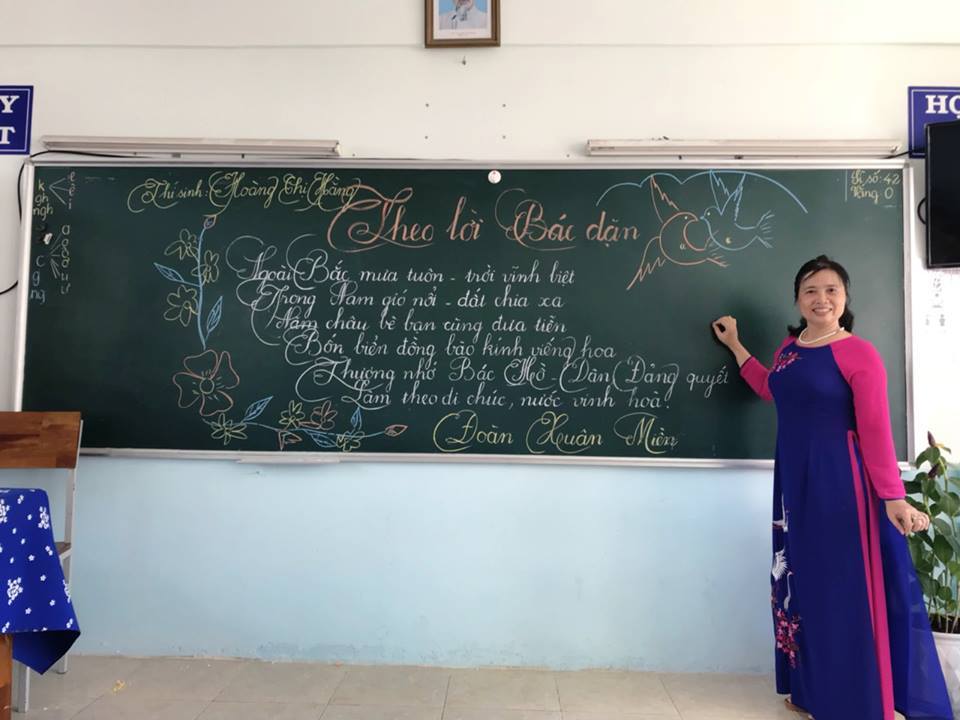 Y
T
HỌ
k
gh
ngh
e
ê
i
c
g
ng
Thí sinh: Hoàng Thị Hằng
Sĩ số: 42
Vắng: 0
Theo lời Bác dặn
Ngoài Bắc mưa tuôn - trời vĩnh biệt
Trong Nam gió nổi - đất chia xa
Năm châu bè bạn cùng đưa tiễn
Bốn biển đồng bào kính viếng hoa
Thương nhớ Bác Hồ - Dân Đảng quyết
Làm theo di chúc, nước vinh hoà.
Đoàn Xuân Miền